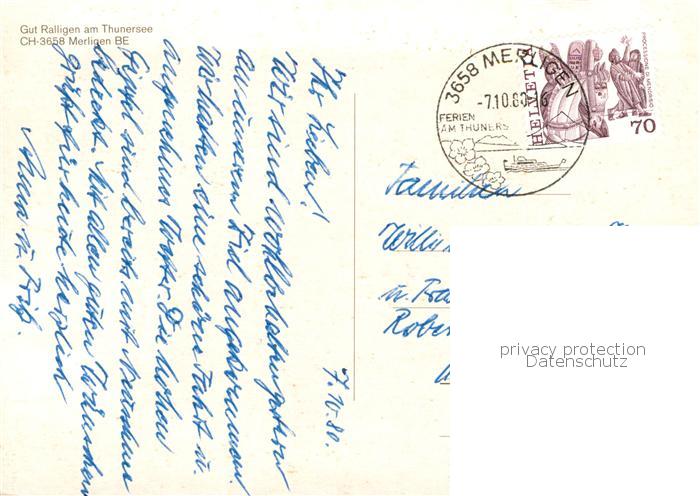 Gut Ralligen am Thunersee
CH-3658 Merligen BE
7.10.80.
Ihr Lieben!
Wir sind wohlbehalten gestern
an unserem Ziel angekommen.
Wir hatten eine schöne Fahrt u.
angenehmes Wetter. Die hohen
Gipfel sind bereits mit Neuschnee
bedeckt. Mit allen guten Wünschen
grüßt für heute herzlich
3658 MERLIGEN
-7.10.80
FERIEN
AM THUNERS
HELVETIA
PROCESSIONE DI MENDRISIO
70
Familien
Willi
u.
Rober
privacy protection
Datenschutz